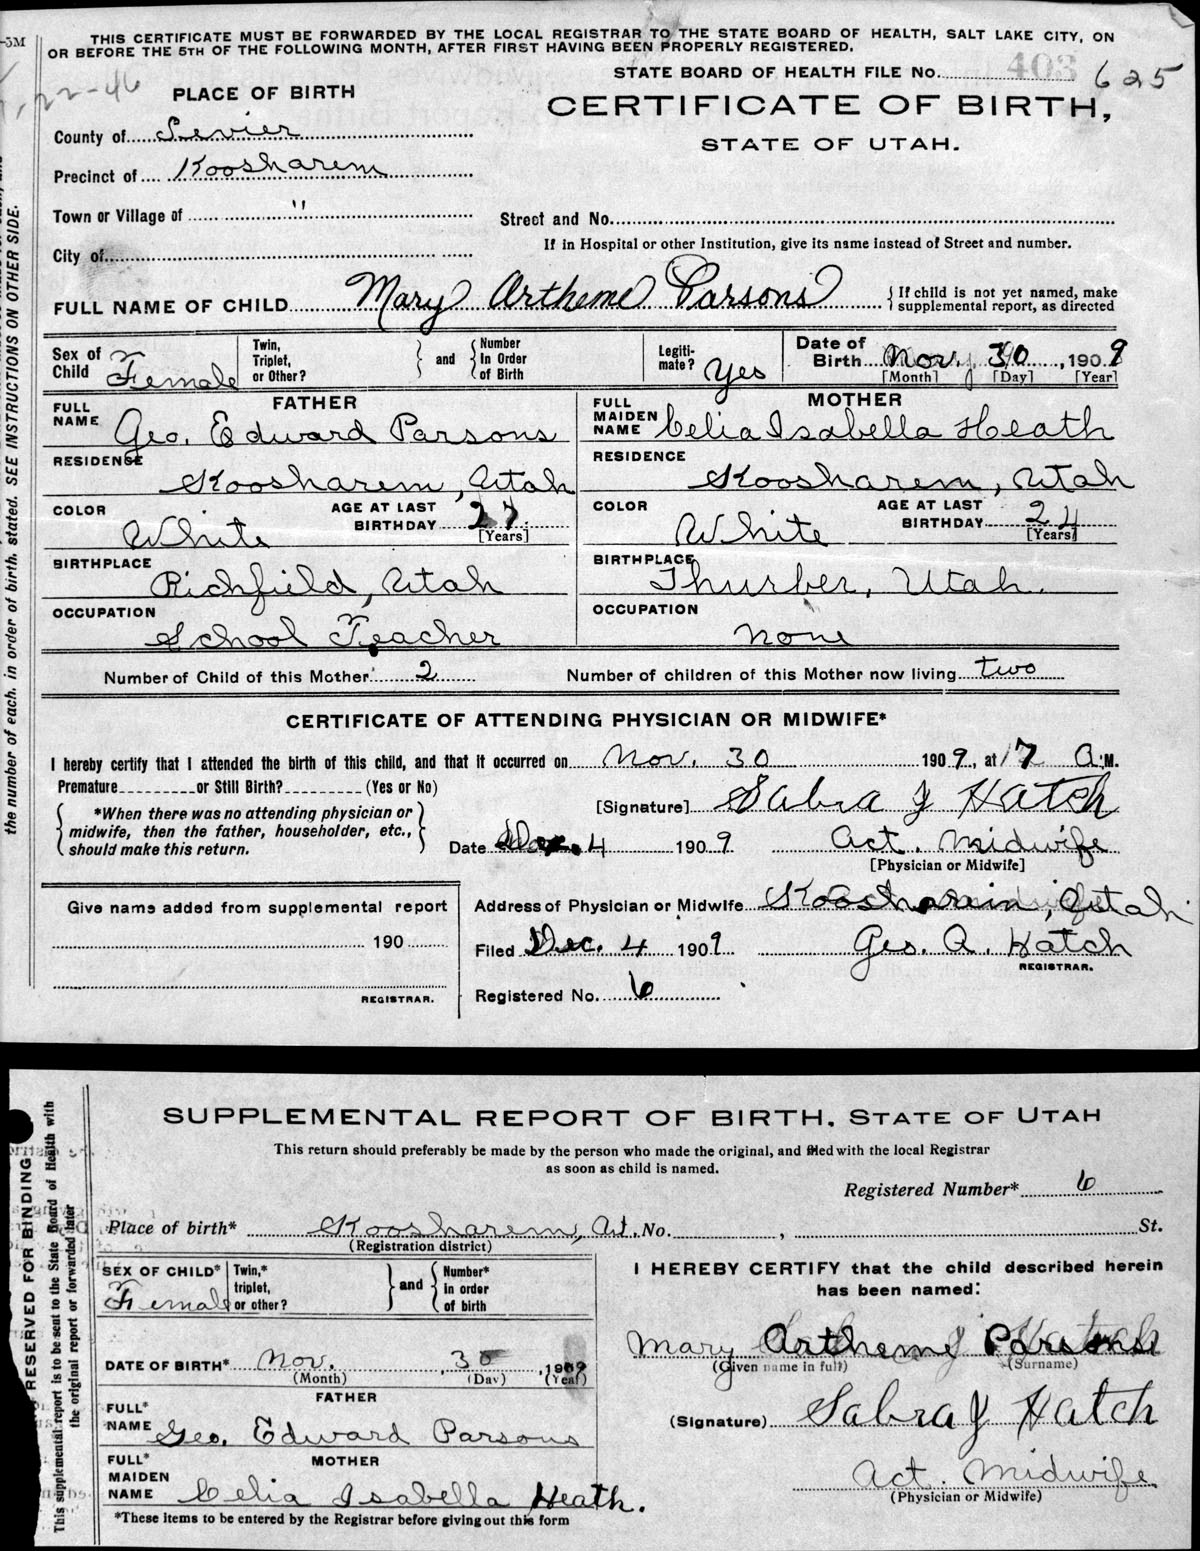 -5M
THIS CERTIFICATE MUST BE FORWARDED BY THE LOCAL REGISTRAR TO THE STATE BOARD OF HEALTH, SALT LAKE CITY, ON
OR BEFORE THE 5TH OF THE FOLLOWING MONTH, AFTER FIRST HAVING BEEN PROPERLY REGISTERED.
STATE BOARD OF HEALTH FILE No. 403 625
22-46
PLACE OF BIRTH
CERTIFICATE OF BIRTH,
STATE OF UTAH.
County of Sevier
Precinct of Koosharem
Town or Village of "
Street and No.
If in Hospital or other Institution, give its name instead of Street and number.
City of
FULL NAME OF CHILD Mary Artheme Parsons { If child is not yet named, make
supplemental report, as directed
Sex of Child Female
Twin, Triplet, or Other? } and { Number In Order of Birth
Legiti-mate? Yes
Date of Birth Nov. 30, 1909
[Month] [Day] [Year]
FATHER
FULL NAME Geo. Edward Parsons
RESIDENCE Koosharem, Utah
COLOR White AGE AT LAST BIRTHDAY 27 [Years]
BIRTHPLACE Richfield, Utah
OCCUPATION School Teacher
MOTHER
FULL MAIDEN NAME Celia Isabella Heath
RESIDENCE Koosharem, Utah
COLOR White AGE AT LAST BIRTHDAY 24 [Years]
BIRTHPLACE Thurber, Utah.
OCCUPATION None
Number of Child of this Mother 2 Number of children of this Mother now living two
CERTIFICATE OF ATTENDING PHYSICIAN OR MIDWIFE*
I hereby certify that I attended the birth of this child, and that it occurred on Nov. 30 1909, at 7 A.M.
Premature or Still Birth? (Yes or No)
{ *When there was no attending physician or
midwife, then the father, householder, etc.,
should make this return. }
[Signature] Sabra J Hatch
Date Dec. 4 1909 Act. Midwife
[Physician or Midwife]
Give name added from supplemental report
190
REGISTRAR.
Address of Physician or Midwife Utah
Filed Dec. 4 1909 Geo. A. Hatch
REGISTRAR.
Registered No. 6
the number of each, in order of birth, stated. SEE INSTRUCTIONS ON OTHER SIDE.
SUPPLEMENTAL REPORT OF BIRTH, STATE OF UTAH
This return should preferably be made by the person who made the original, and filed with the local Registrar
as soon as child is named.
Registered Number* 6
Place of birth* Koosharem, Ut. No. , St.
(Registration district)
SEX OF CHILD* Female
Twin,* triplet, or other? } and { Number* in order of birth
DATE OF BIRTH* Nov. 30, 1909
(Month) (Day) (Year)
FATHER
FULL* NAME Geo. Edward Parsons
MOTHER
FULL* MAIDEN NAME Celia Isabella Heath.
*These items to be entered by the Registrar before giving out this form
I HEREBY CERTIFY that the child described herein
has been named:
Mary Artheme Parsons
(Given name in full) (Surname)
(Signature) Sabra J Hatch
Act. Midwife
(Physician or Midwife)
RESERVED FOR BINDING
This supplemental report is to be sent to the State Board of Health with
the original report or forwarded later